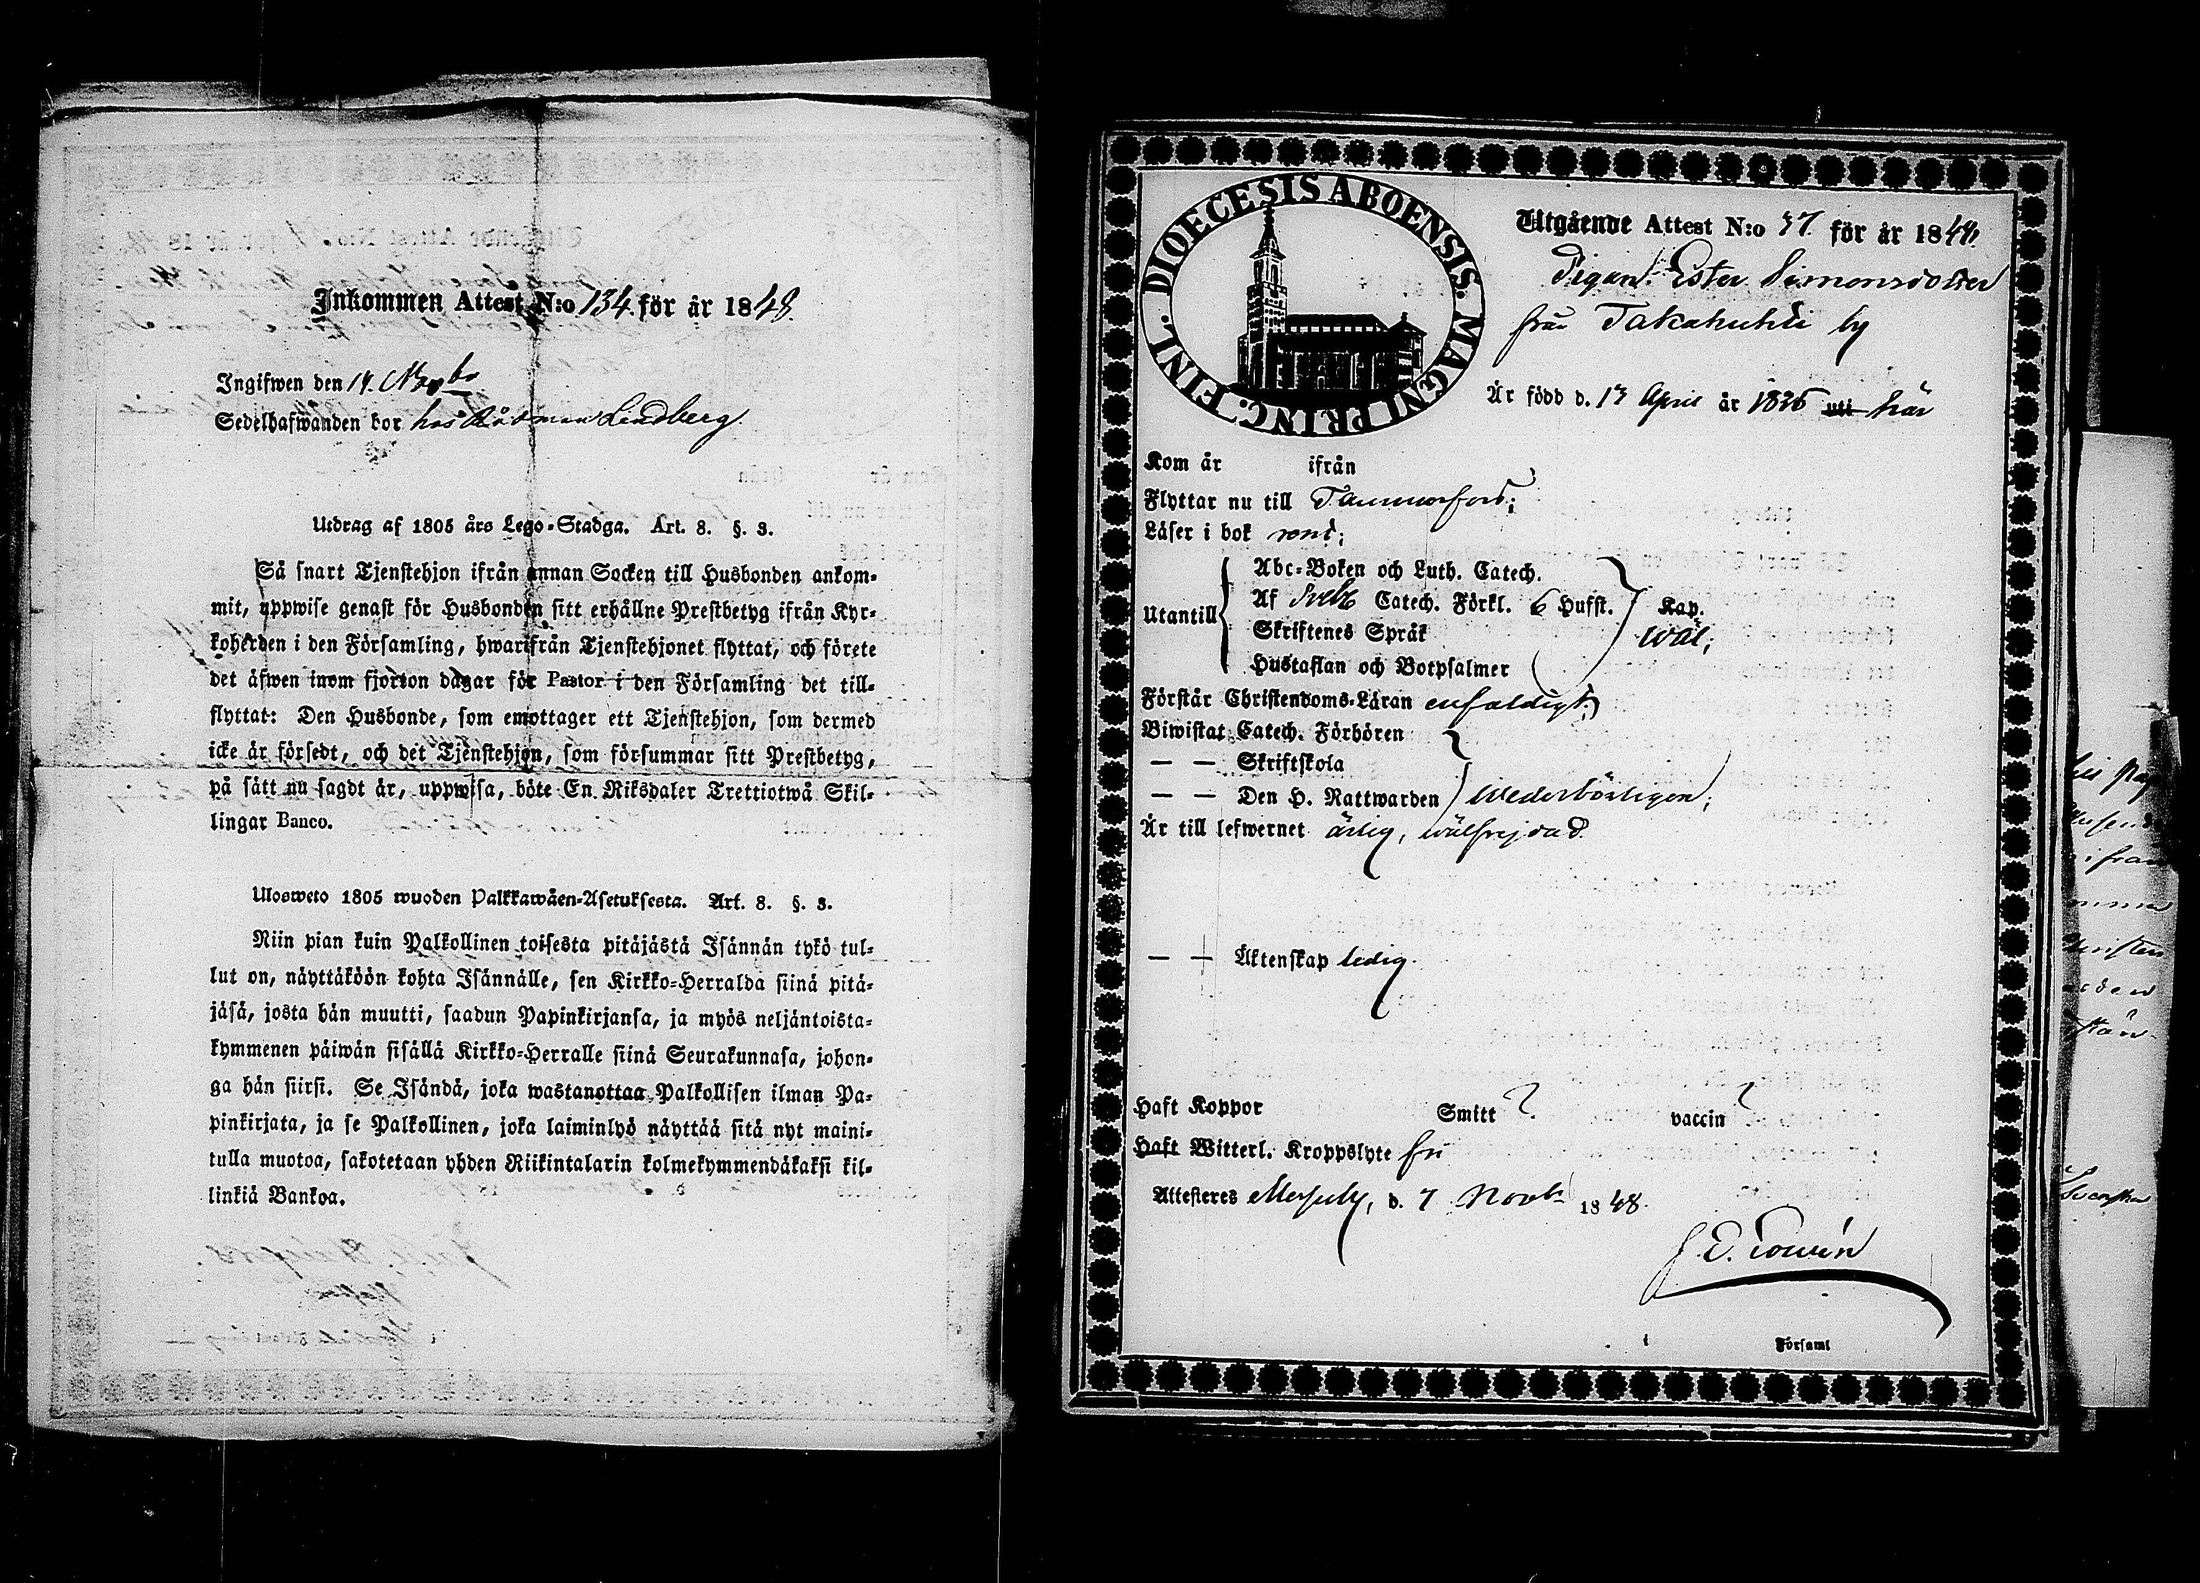 Inkommen Attest N:o 134 för år 1848.
Ingifwen den 14. Novbr
Sedelhafwanden bor hos Rådman Lindberg.
Utdrag af 1805 års Lego-Stadga. Art. 8. §. 3.
Så snart Tjenstehjon ifrån annan Socken till Husbonden ankom-
mit, uppwise genast för Husbonden sitt erhållne Prestbetyg ifrån Kyr-
koherden i den Församling, hwarifrån Tjenstehjonet flyttat, och förete
det äfwen inom fjorton dagar för Pastor i den Församling det till-
flyttat: Den Husbonde, som emottager ett Tjenstehjon, som dermed
icke är försedt, och det Tjenstehjon, som försummar sitt Prestbetyg,
på sätt nu sagdt är, uppwisa, böte En Riksdaler Trettiotwå Skil-
lingar Banco.
Ulosweto 1805 wuoden Palkkawäen-Asetuksesta. Art. 8. §. 3.
Niin pian kuin Palkollinen toisesta pitäjästä Isännän tykö tul-
lut on, näyttäköön kohta Isännälle, sen Kirkko-Herralda siinä pitä-
jäsä, josta hän muutti, saadun Papinkirjansa, ja myös neljäntoista-
kymmenen päiwän sisällä Kirkko-Herralle siinä Seurakunnasa, johon-
ga hän siirsi. Se Isändä, joka wastanottaa Palkollisen ilman Pa-
pinkirjata, ja se Palkollinen, joka laiminlyö näyttää sitä nyt maini-
tulla muotoa, sakotetaan yhden Riikintalarin kolmekymmendäkaksi kil-
linkiä Bankoa.
DIOECESIS ABOENSIS. MAGNI PRINC. FINL.
Utgående Attest N:o 37. för år 1848.
Pigan Ester Simonsdotter
från Takahuhti by
Är född d. 13 April år 1826 uti här
Kom år ifrån
Flyttar nu till Tammerfors;
Läser i bok rent;
Abc-Boken och Luth. Catech.
Utantill Af Sveb. Catech. Förkl. 6 Hufst. Kap.
Skriftenes Språk wäl;
Hustaflan och Botpsalmer
Förstår Christendoms-Läran enfaldigt;
Biwistat Catech. Förhören
— — Skriftskola
— — Den H. Nattwarden wederbörligen;
Är till lefwernet ärlig, wälfrejdad.
— — Äktenskap ledig.
Haft Koppor Smitt ? vaccin ?
Haft Witterl. Kroppslyte fri
Attesteres Messuby, d. 7 Novbr 1848.
i Forsaml